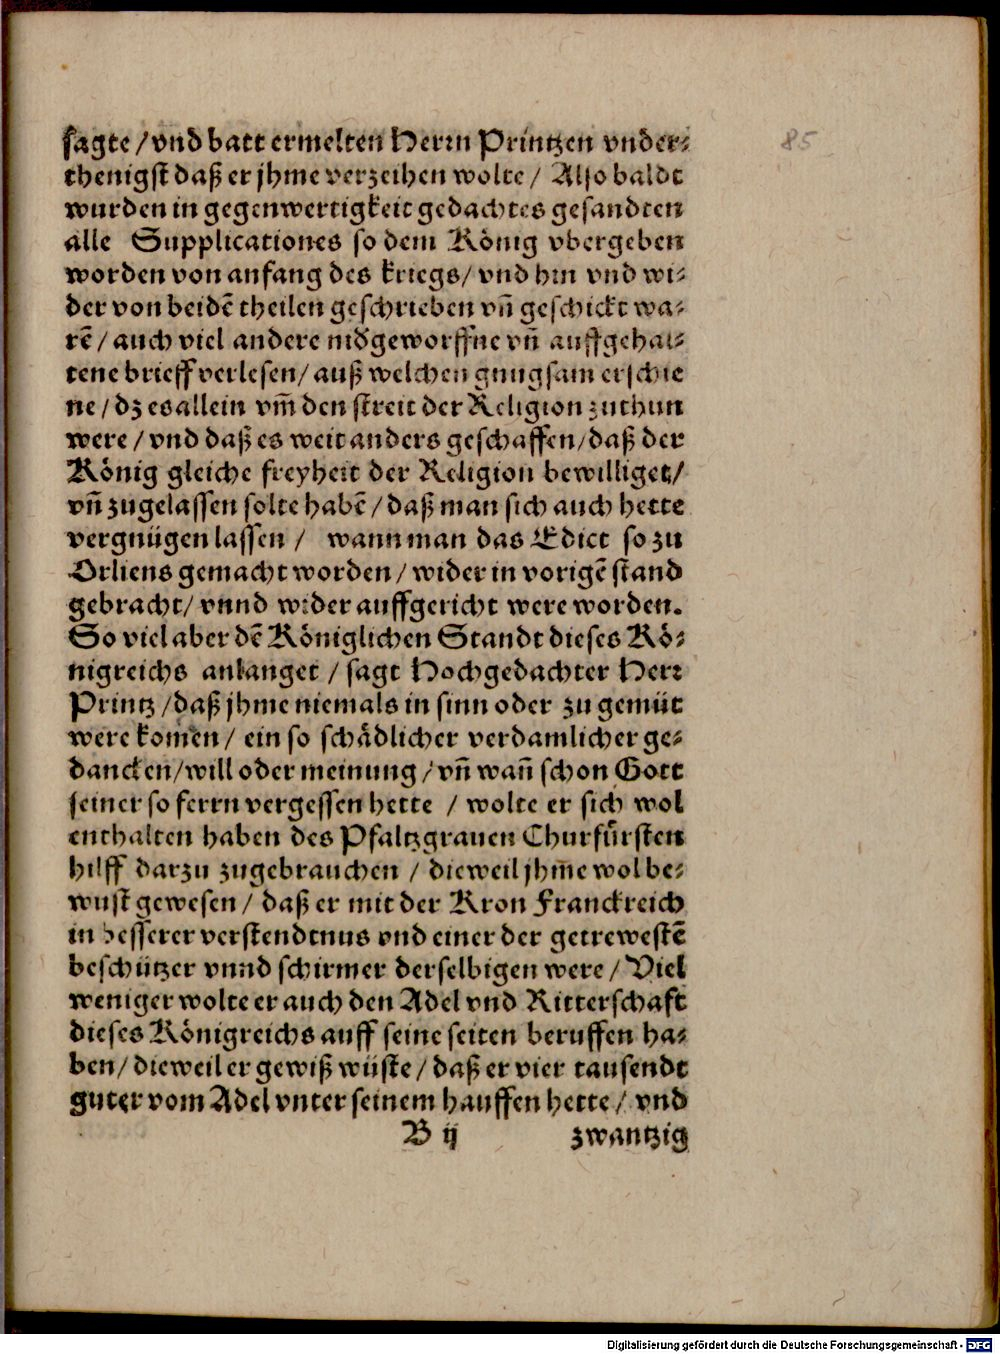 sagte / vnd batt ermelten Herrn Printzen vnder-
thenigst daß er jhme verzeihen wolte / Also baldt
wurden in gegenwertigkeit gedachtes gesandten
alle Supplicationes so dem König vbergeben
worden von anfang des kriegs / vnd hin vnd wi-
der von beidē theilen geschrieben vñ geschickt wa-
rē / auch viel andere nidgeworffne vñ auffgehal-
tene brieff verlesen / auß welchen gnugsam erschie
ne / dz es allein vm̄ den streit der Religion zuthun
were / vnd daß es weit anders geschaffen / daß der
König gleiche freyheit der Religion bewilliget /
vñ zugelassen solte habē / daß man sich auch hette
vergnügen lassen / wann man das Edict so zu
Orliens gemacht worden / wider in vorigē stand
gebracht / vnnd wider auffgericht were worden.
So viel aber dē Königlichen Standt dieses Kö-
nigreichs anlanget / sagt Hochgedachter Herr
Printz / daß jhme niemals in sinn oder zu gemüt
were komēn / ein so schädlicher verdamlicher ge-
dancken / will oder meinung / vñ wañ schon Gott
seiner so ferrn vergessen hette / wolte er sich wol
enthalten haben des Pfaltzgrauen Churfürsten
hilff darzu zugebrauchen / dieweil jhm̄e wol be-
wust gewesen / daß er mit der Kron Franckreich
in besserer verstendtnus vnd einer der getrewestē
beschützer vnnd schirmer derselbigen were / Viel
weniger wolte er auch den Adel vnd Ritterschaft
dieses Königreichs auff seine seiten beruffen ha-
ben / dieweil er gewiß wüste / daß er vier tausendt
guter vom Adel vnter seinem hauffen hette / vnd
B ij zwantzig
85
Digitalisierung gefördert durch die Deutsche Forschungsgemeinschaft - DFG